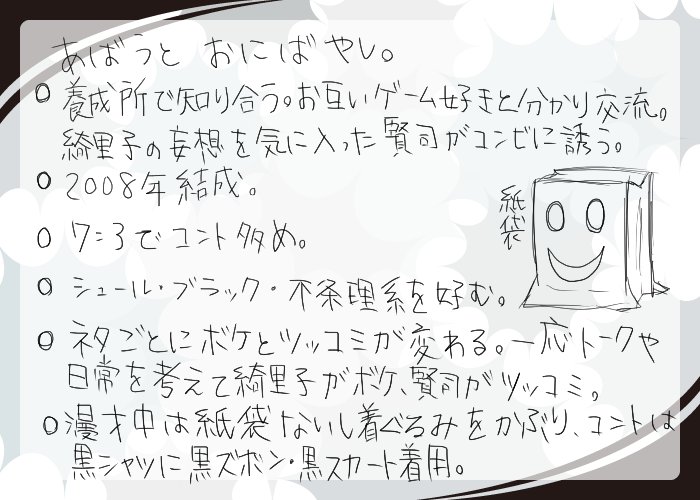 あばうと おにばやし。
○ 養成所で知り合う。お互いゲーム好きと分かり交流。
綺里子の妄想を気に入った賢司がコンビに誘う。
○ 2008年結成。
○ 7:3でコント多め。
○ シュール・ブラック・不条理系を好む。
○ ネタごとにボケとツッコミが変わる。一応トークや
日常を考えて綺里子がボケ、賢司がツッコミ。
○ 漫才中は紙袋ないし着ぐるみをかぶり、コントは
黒シャツに黒ズボン・黒スカート着用。
紙袋